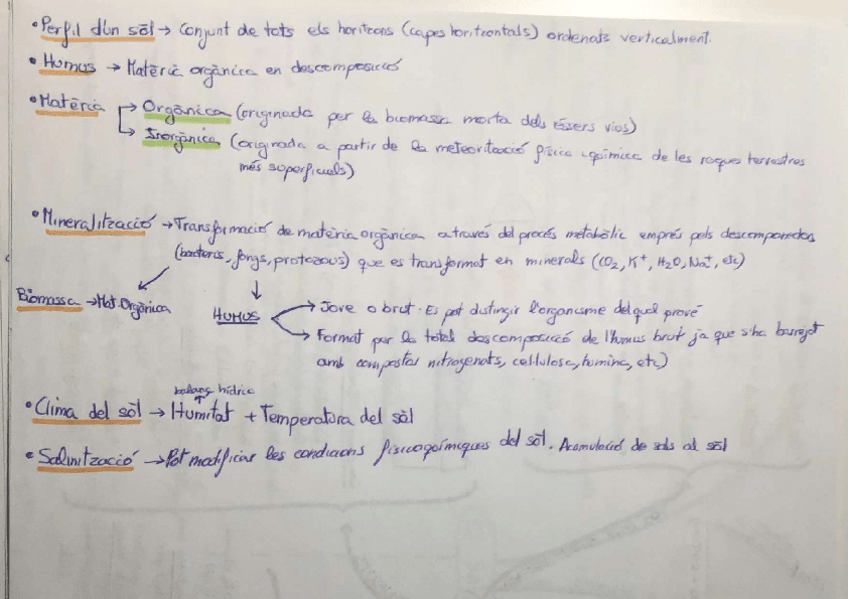 • Perfil d'un sòl → Conjunt de tots els horitzons (capes horitzontals) ordenats verticalment.
• Humus → Matèria orgànica en descomposició
• Matèria → Orgànica (originada per la biomassa morta dels éssers vius)
→ Inorgànica (originada a partir de la meteorització física i química de les roques terrestres
més superficials)
• Mineralització → Transformació de matèria orgànica a través del procés metabòlic emprés pels descomponedors
(bacteris, fongs, protozous) que es transformat en minerals (CO2, K+, H2O, Na+, etc)
Biomassa → Mat. Orgànica
HUMUS → Jove o brut. Es pot distingir l'organisme del qual prové
→ Format per la total descomposició de l'humus brut ja que s'ha barrejat
amb compostos nitrogenats, cellulosa, humina, etc)
balanç hídric
• Clima del sòl → Humitat + Temperatura del sòl
• Salinització → Pot modificar les condicions fisicoquímiques del sòl. Acumulació de sals al sòl